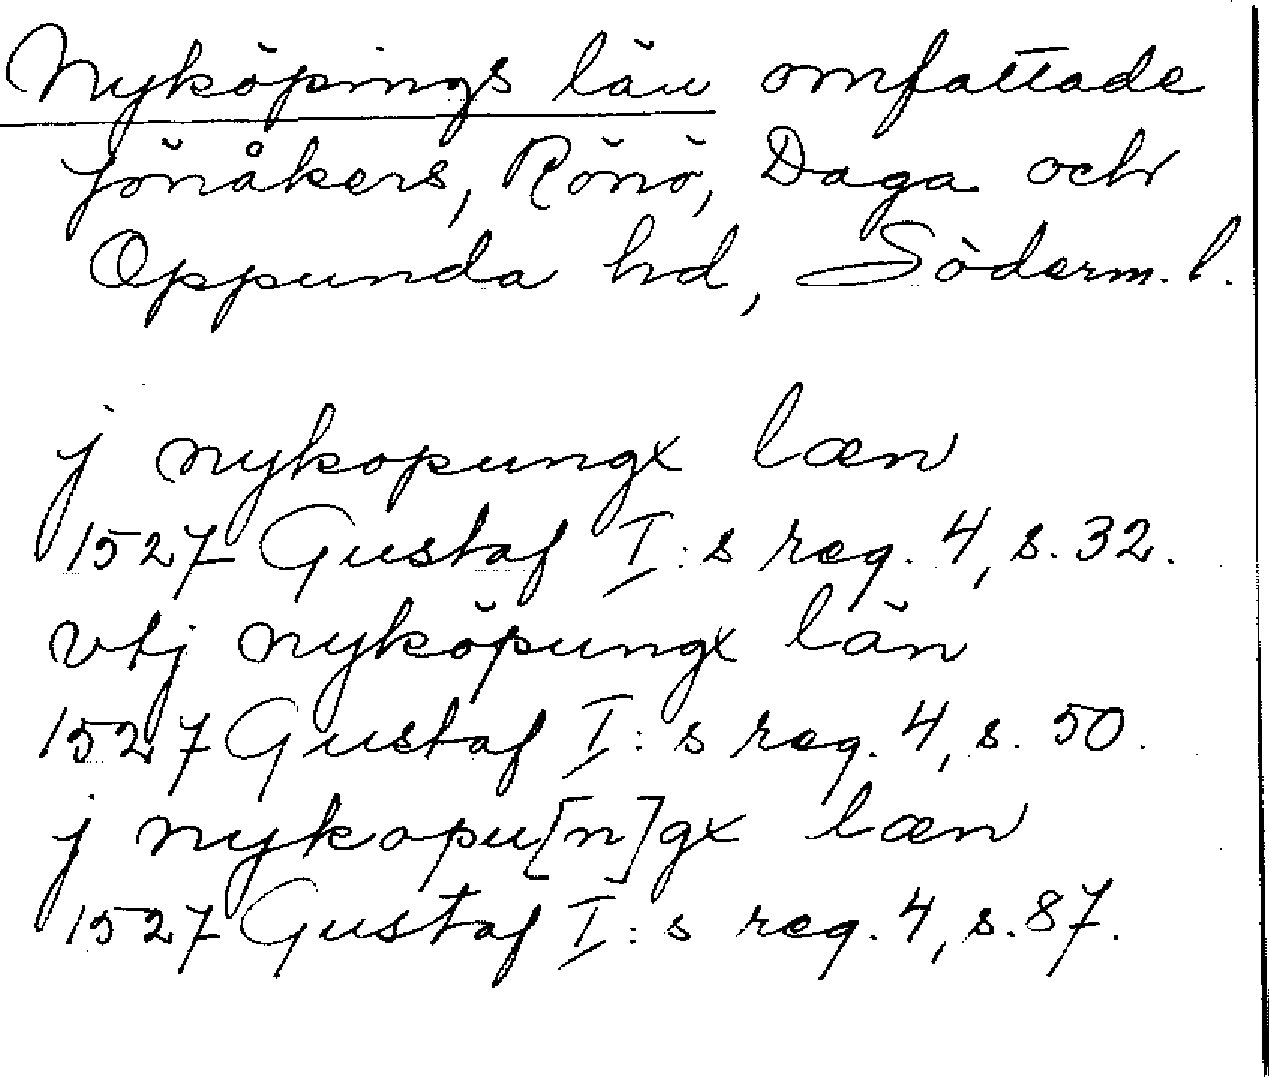 Nyköpings län omfattade
Jönåkers, Rönö, Daga och
Oppunda hd, Söderm. l.
j nykopungx læn
1527 Gustaf I:s reg. 4, s. 32.
vtj nyköpungx län
1527 Gustaf I:s reg. 4, s. 50.
j nykopu[n]gx læn
1527 Gustaf I:s reg. 4, s. 87.